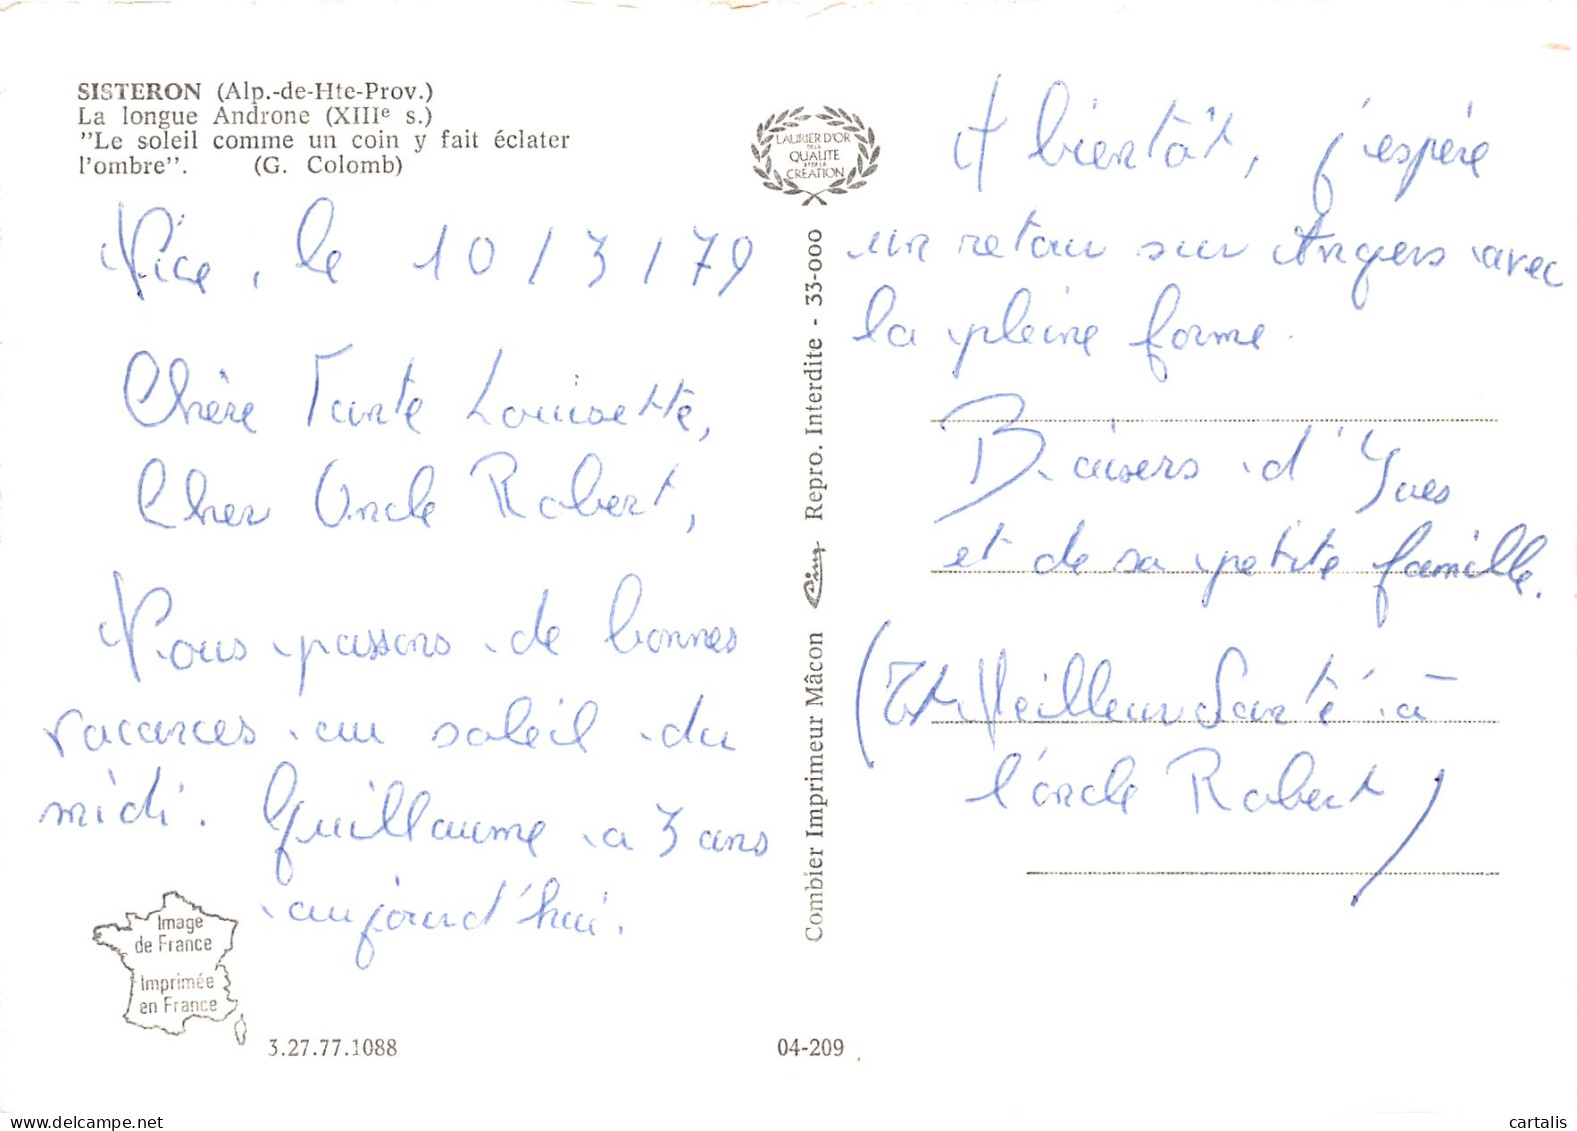 SISTERON (Alp.-de-Hte-Prov.)
La longue Androne (XIIIe s.)
"Le soleil comme un coin y fait éclater
l'ombre". (G. Colomb)
Nice, le 10/3/79
Chère Tante Louisette,
Cher Oncle Robert,
Nous passons de bonnes
vacances au soleil du
midi. Guillaume a 3 ans
aujourd'hui.
Image
de France
Imprimée
en France
3.27.77.1088
LAURIER D'OR
DE LA
QUALITE
ET DE LA
CREATION
Combier Imprimeur Mâcon Cim Repro. Interdite - 33-000
04-209
A bientôt, j'espère
un retour sur Angers avec
la pleine forme.
Baisers d'Yves
et de sa petite famille.
(Et Meilleur Santé à
l'oncle Robert)
cartalis